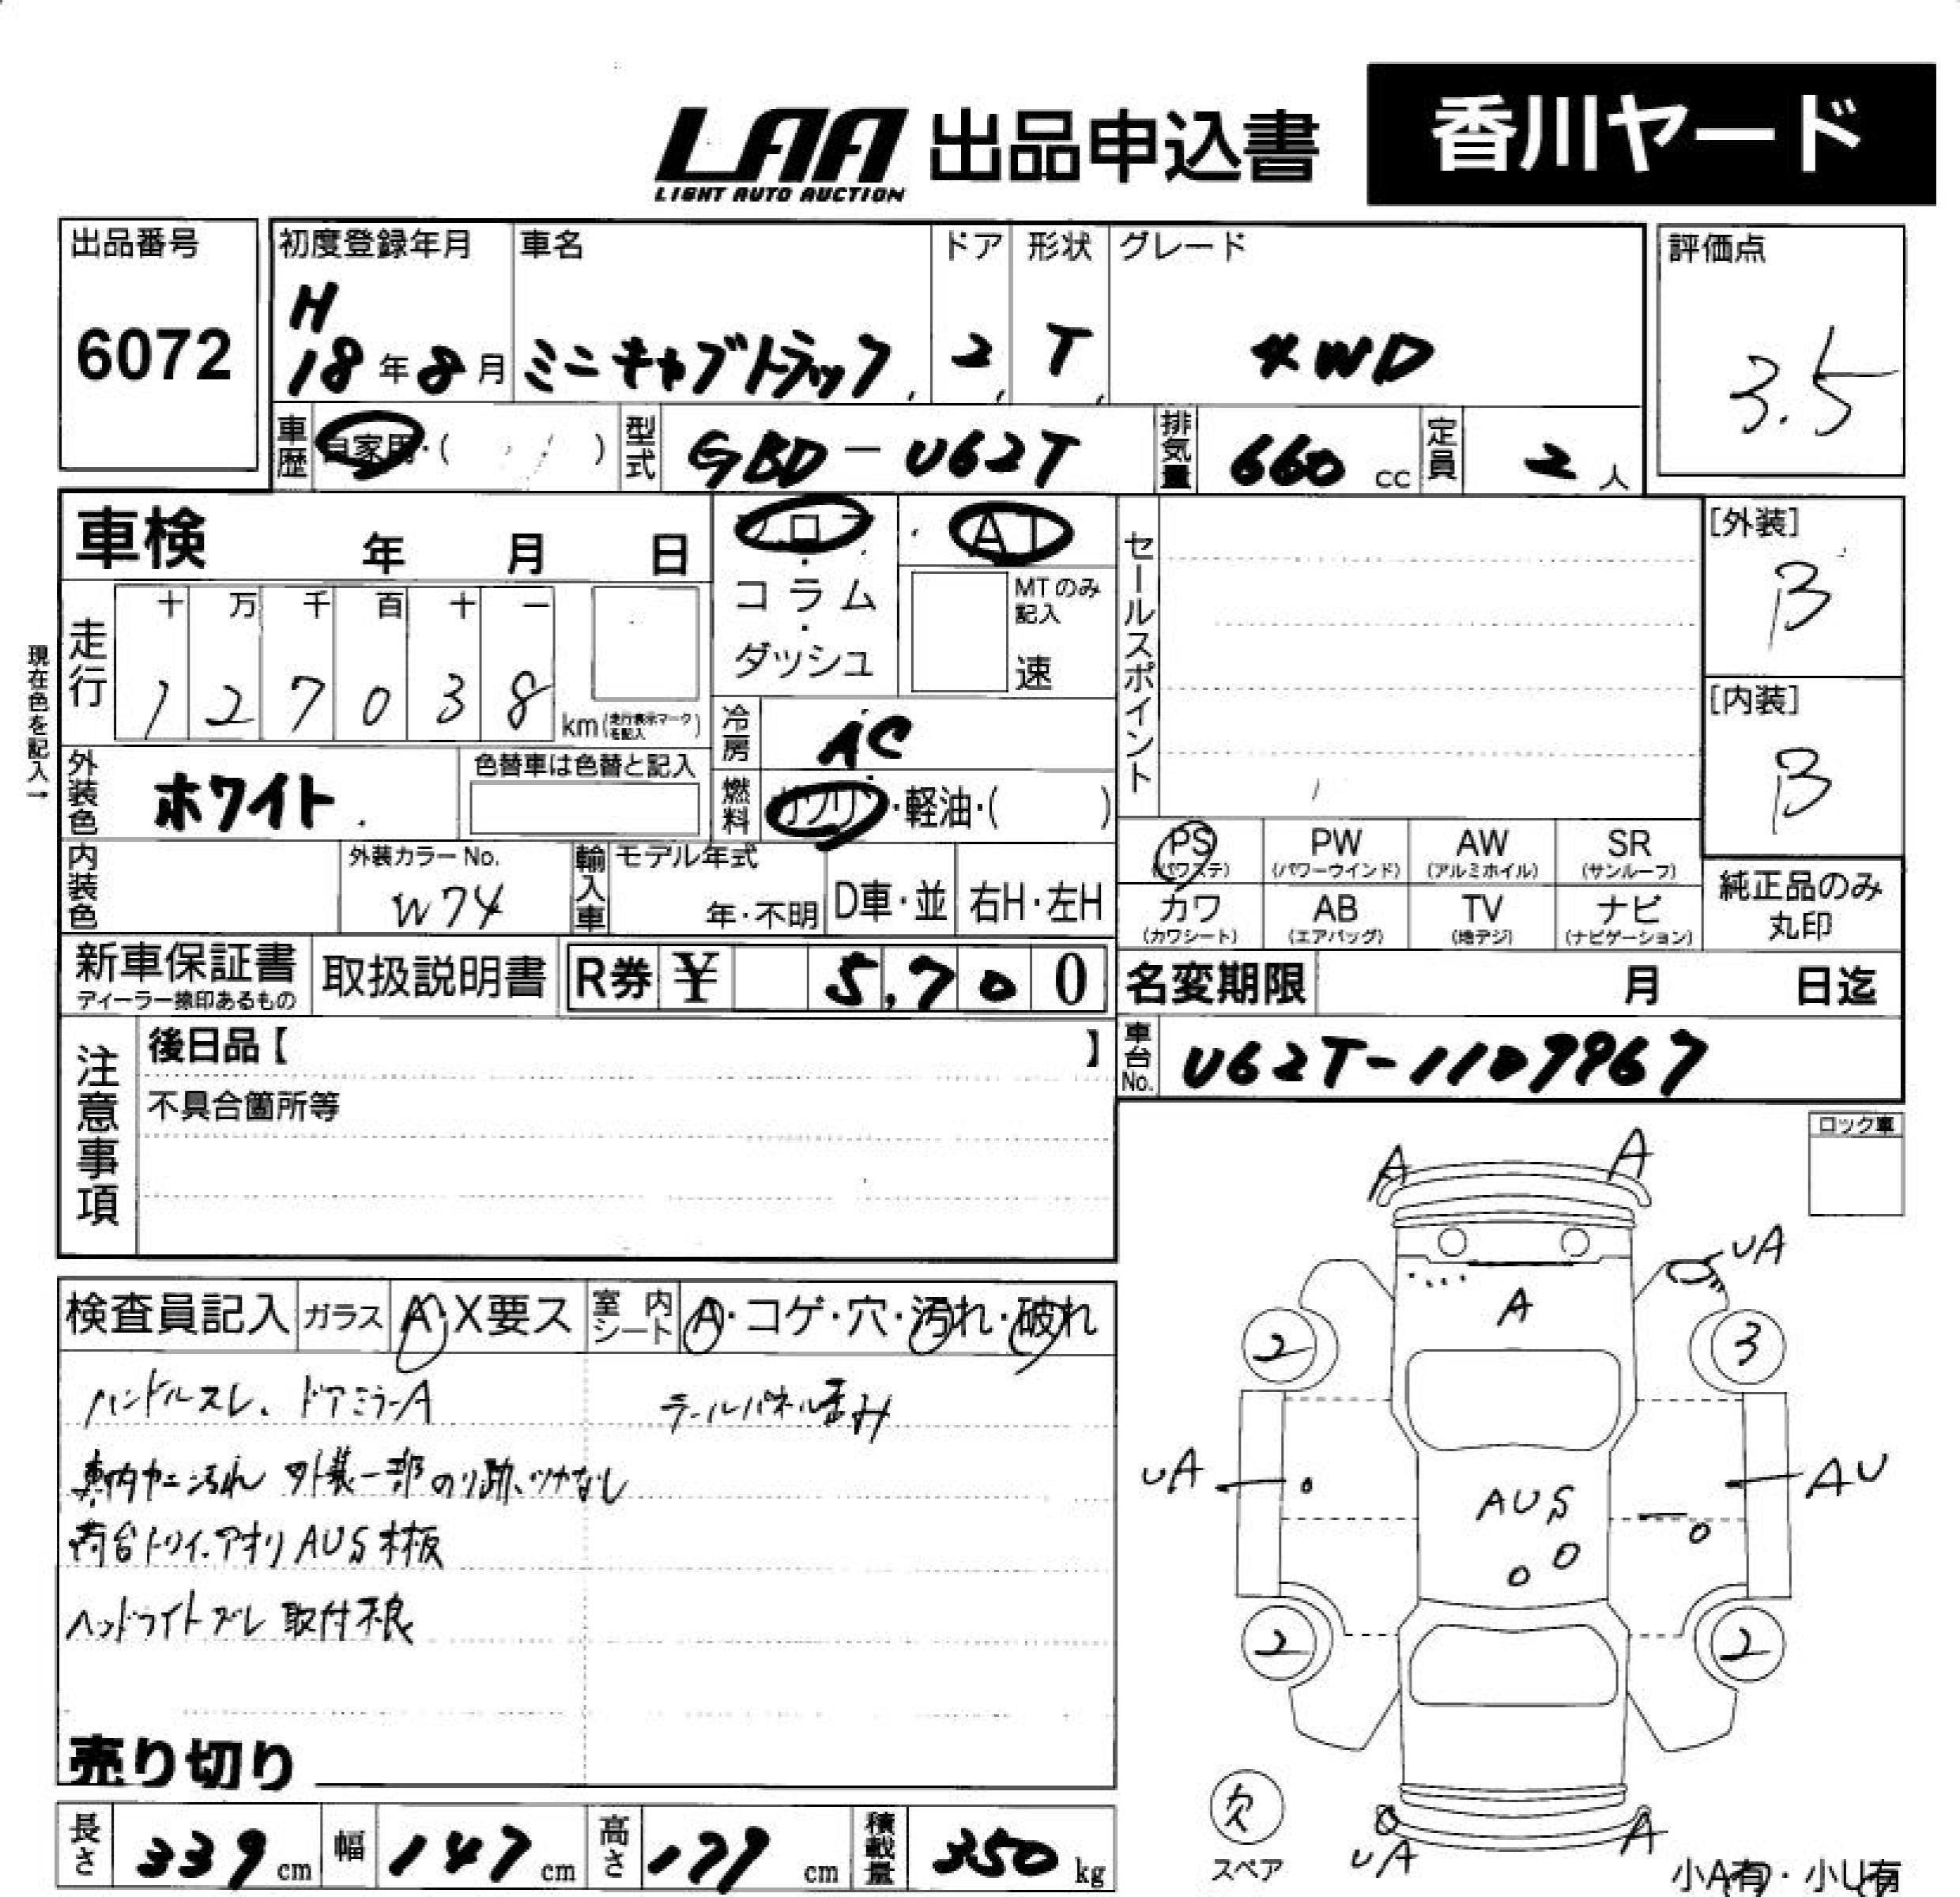 LAA 出品申込書 香川ヤード
LIGHT AUTO AUCTION
出品番号 初度登録年月 車名 ドア 形状 グレード 評価点
6072 H 18年8月 ミニキャブトラック 2 T 4WD 3.5
車歴 自家用・( ) 型式 GBD-U62T 排気量 660 cc 定員 2 人
車検 年 月 日 フロア・コラム・ダッシュ AT MTのみ記入 速
セールスポイント
[外装] B
走行 十 万 千 百 十 一
1 2 7 0 3 8 km (走行表示マークを記入)
現在色を記入→
冷房 AC
[内装] B
外装色 ホワイト 色替車は色替と記入
燃料 ガソリン・軽油・( )
内装色 外装カラーNo. W74 輸入車 モデル年式 年・不明 D車・並 右H・左H
PS (パワステ) PW (パワーウインド) AW (アルミホイル) SR (サンルーフ)
カワ (カワシート) AB (エアバッグ) TV (地デジ) ナビ (ナビゲーション)
純正品のみ丸印
新車保証書 ディーラー捺印あるもの 取扱説明書 R券 ¥ 5,700
名変期限 月 日迄
注意事項 後日品【 】
車台No. U62T-1109967
不具合箇所等
ロック車
検査員記入 ガラス A・X要ス 室内シート A・コゲ・穴・汚れ・破れ
ハンドルスレ、ドアミラーA テールパネル歪み
車内ヤニ汚れ 外装一部のり跡、ツヤなし
荷台トリイ、アオリAUS木板
ヘッドライトズレ取付不良
売り切り
A A
UA
A
2 3
UA AU
AUS
2 2
欠
スペア
UA A
小A有・小U有
長さ 339 cm 幅 147 cm 高さ 179 cm 積載量 350 kg